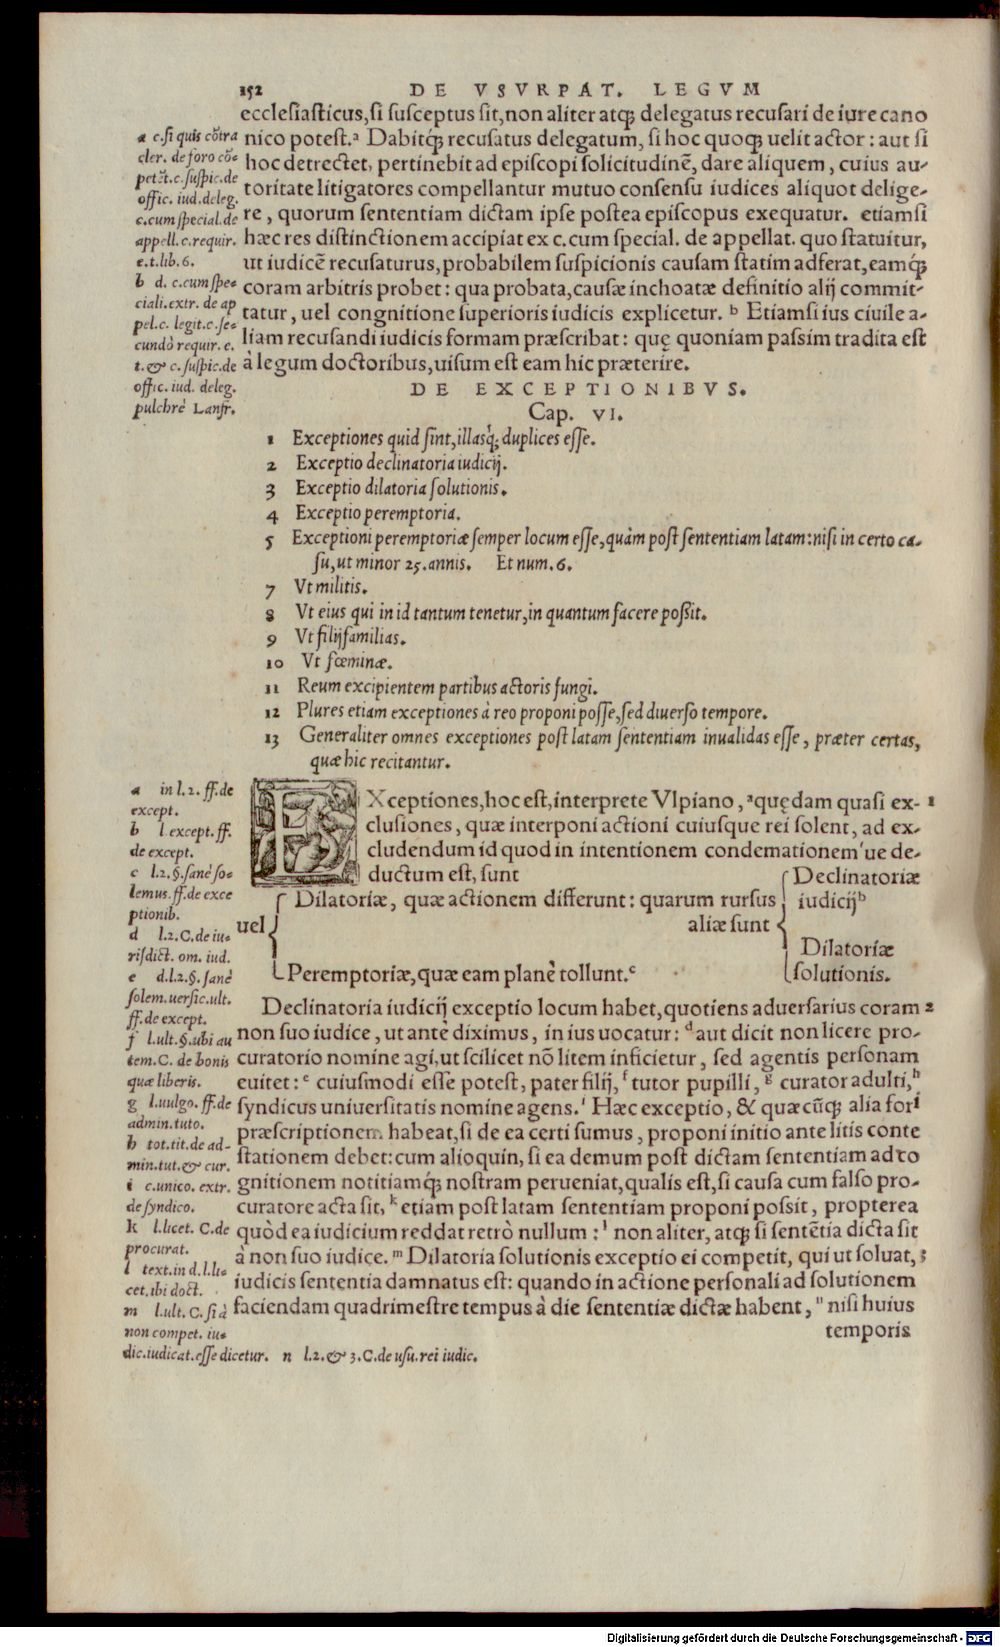 152 DE VSVRPAT. LEGVM
ecclesiasticus, si susceptus sit, non aliter atq; delegatus recusari de iure cano
nico potest.ᵃ Dabitq́; recusatus delegatum, si hoc quoq; uelit actor: aut si
hoc detrectet, pertinebit ad episcopi solicitudinẽ, dare aliquem, cuius au-
toritate litigatores compellantur mutuo consensu iudices aliquot delige-
re, quorum sententiam dictam ipse postea episcopus exequatur. etiamsi
hæc res distinctionem accipiat ex c. cum special. de appellat. quo statuitur,
ut iudicẽ recusaturus, probabilem suspicionis causam statim adferat, eamq́;
coram arbitris probet: qua probata, causæ inchoatæ definitio alij commit-
tatur, uel congnitione superioris iudicis explicetur.ᵇ Etiamsi ius ciuile a-
liam recusandi iudicis formam præscribat: quę quoniam passim tradita est
à legum doctoribus, uisum est eam hic præterire.
a c. si quis cõtra
cler. de foro cõ-
petẽt. c. suspic. de
offic. iud. deleg.
c. cum special. de
appell. c. requir.
e. t. lib. 6.
b d. c. cum spe-
ciali. extr. de ap
pel. c. legit. c. se-
cundò requir. e.
t. & c. suspic. de
offic. iud. deleg.
pulchrè Lanfr.
DE EXCEPTIONIBVS.
Cap. VI.
1 Exceptiones quid sint, illasq́; duplices esse.
2 Exceptio declinatoria iudicij.
3 Exceptio dilatoria solutionis.
4 Exceptio peremptoria.
5 Exceptioni peremptoriæ semper locum esse, quàm post sententiam latam: nisi in certo ca-
su, ut minor 25. annis. Et num. 6.
7 Vt militis.
8 Vt eius qui in id tantum tenetur, in quantum facere poßit.
9 Vt filijfamilias.
10 Vt fœminæ.
11 Reum excipientem partibus actoris fungi.
12 Plures etiam exceptiones à reo proponi posse, sed diuerso tempore.
13 Generaliter omnes exceptiones post latam sententiam inualidas esse, præter certas,
quæ hic recitantur.
EXceptiones, hoc est, interprete Vlpiano,ᵃ quędam quasi ex- 1
clusiones, quæ interponi actioni cuiusque rei solent, ad ex-
cludendum id quod in intentionem condemationem'ue de-
ductum est, sunt
Declinatoriæ
Dilatoriæ, quæ actionem differunt: quarum rursus iudicijᵇ
uel aliæ sunt
Dilatoriæ
Peremptoriæ, quæ eam planè tollunt.ᶜ solutionis.
Declinatoria iudicij exceptio locum habet, quotiens aduersarius coram 2
non suo iudice, ut antè diximus, in ius uocatur:ᵈ aut dicit non licere pro-
curatorio nomine agi, ut scilicet nõ litem inficietur, sed agentis personam
euitet:ᵉ cuiusmodi esse potest, pater filij,ᶠ tutor pupilli,ᵍ curator adulti,ʰ
syndicus uniuersitatis nomine agens.ⁱ Hæc exceptio, & quæcũq; alia fori
præscriptionem habeat, si de ea certi sumus, proponi initio ante litis conte
stationem debet: cum alioquin, si ea demum post dictam sententiam ad co
gnitionem notitiamq́; nostram perueniat, qualis est, si causa cum falso pro-
curatore acta sit,ᵏ etiam post latam sententiam proponi possit, propterea
quòd ea iudicium reddat retrò nullum:ˡ non aliter, atq; si sentẽtia dicta sit
à non suo iudice.ᵐ Dilatoria solutionis exceptio ei competit, qui ut soluat, 3
iudicis sententia damnatus est: quando in actione personali ad solutionem
faciendam quadrimestre tempus à die sententiæ dictæ habent,ⁿ nisi huius
temporis
a in l. 2. ff. de
except.
b l. except. ff.
de except.
c l. 2. §. sanè so-
lemus. ff. de exce
ptionib.
d l. 2. C. de iu-
risdict. om. iud.
e d. l. 2. §. sanè
solem. uersic. ult.
ff. de except.
f l. ult. §. ubi au
tem. C. de bonis
quæ liberis.
g l. uulgo. ff. de
admin. tuto.
h tot. tit. de ad-
min. tut. & cur.
i c. unico. extr.
de syndico.
k l. licet. C. de
procurat.
l text. in d. l. li-
cet. ibi doct.
m l. ult. C. si à
non compet. iu-
dic. iudicat. esse dicetur. n l. 2. & 3. C. de usu. rei iudic.
Digitalisierung gefördert durch die Deutsche Forschungsgemeinschaft - DFG